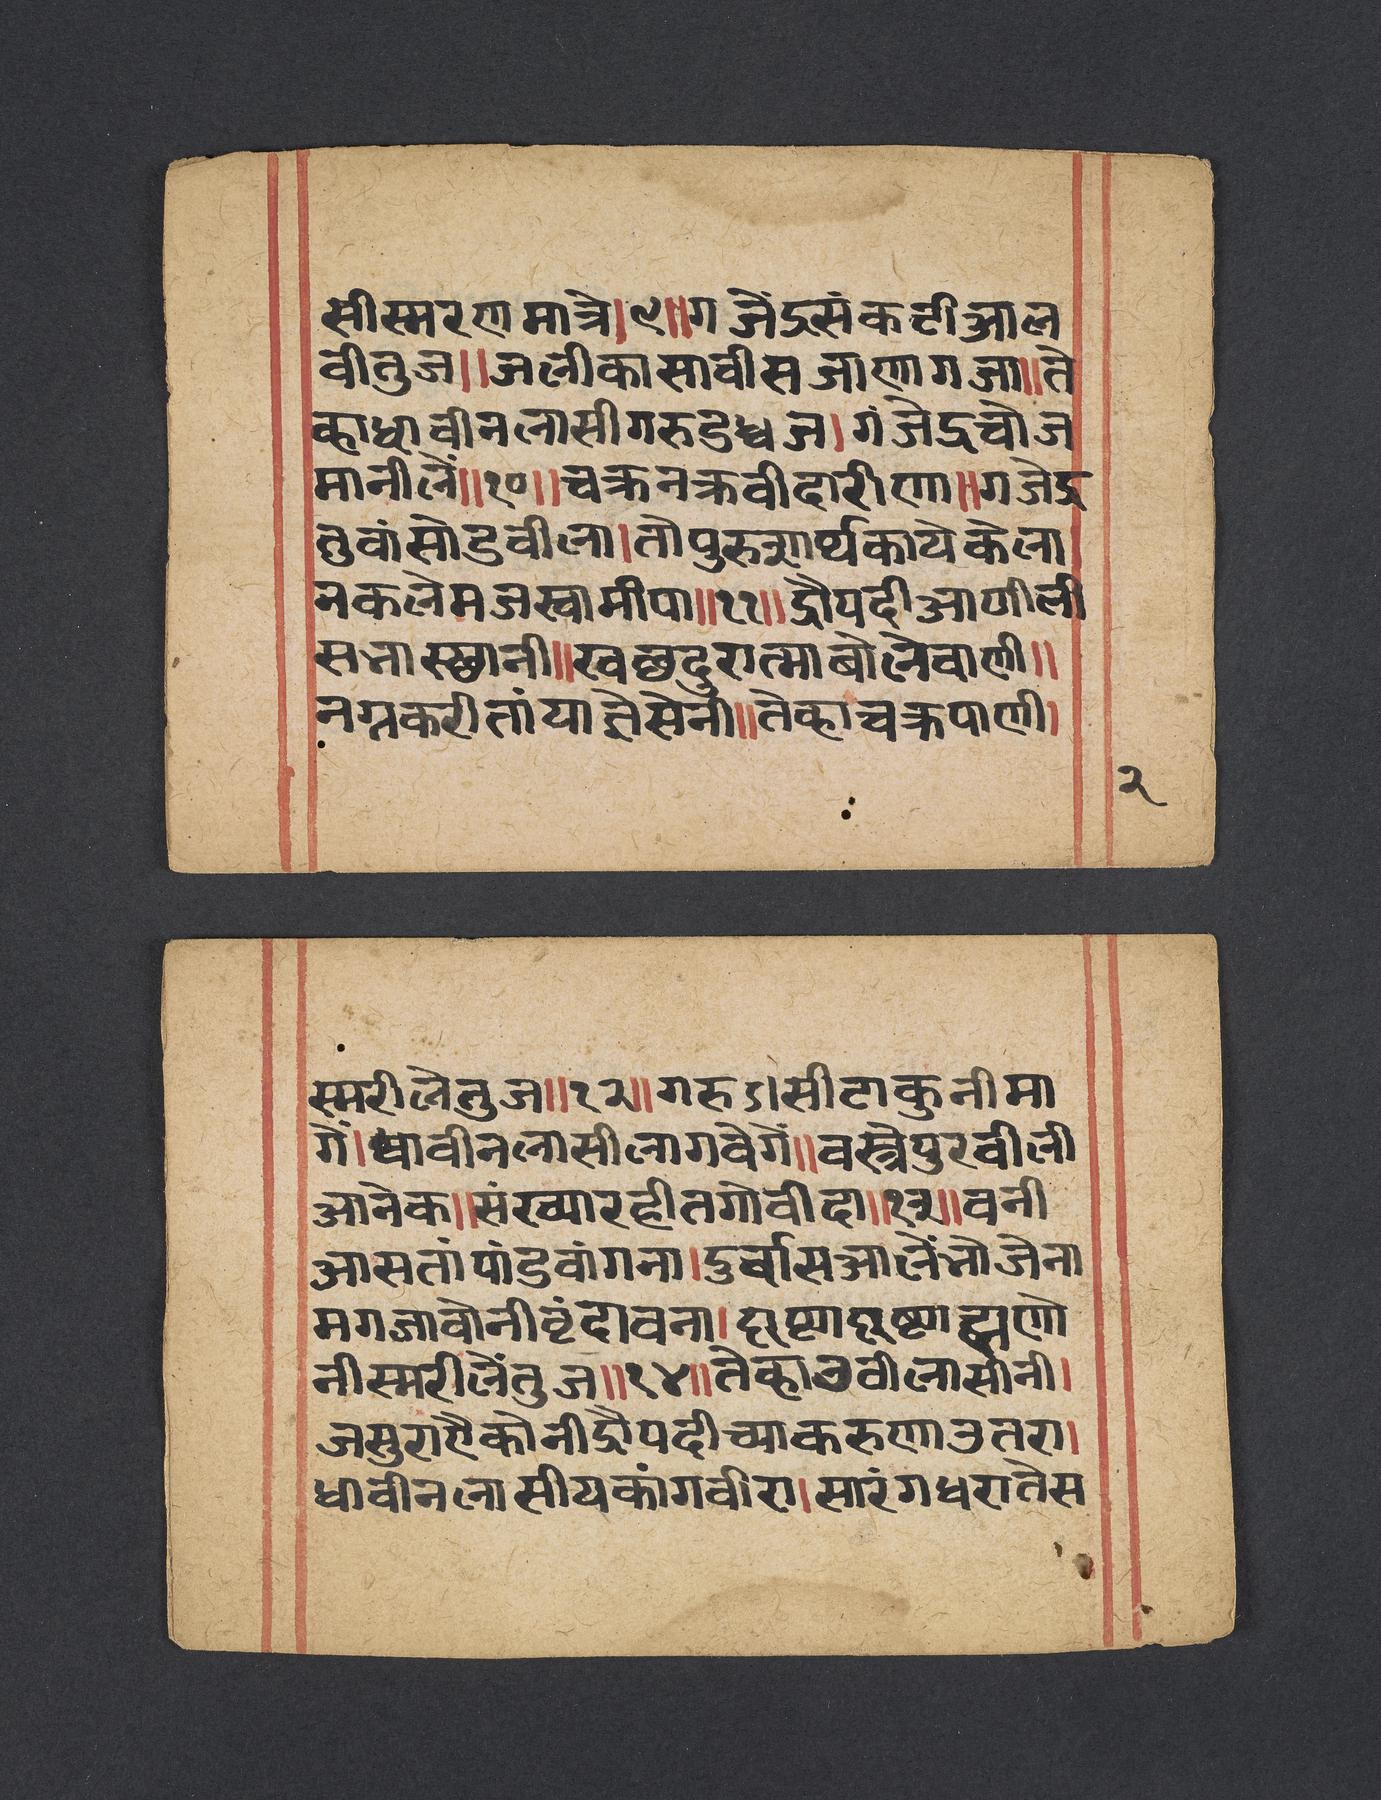 सीस्मरणमात्रे।९॥गजेंद्रसंकटीआल
वीतुज॥जलीकासावीसजाणागजा॥ते
व्हाधावीनलासीगरुडध्वज।गंजेद्रचोज
मानीलें॥१०॥चक्रनक्रवीदारीणा॥गजेद्र
तुवांसोडवीला।तोपुरुशार्थकायेकेला
नकलेमजस्वामीपा॥११॥द्रौपदीआणीली
सभास्छानी॥खळदुरात्माबोलेवाणी॥
नग्नकरीतांयातेसेनी॥तेव्हाचक्रपाणी।
२
स्मरीलेतुज॥१२॥गरुडासीटाकुनीमा
गें।धावीनलासीलागवेगें॥वस्त्रेपुरवीली
आनेक॥संख्यारहीतगोवीदा॥१३॥वनी
आसतांपांडवांगना।दुर्वासआलेंभोजना
मगजावोनीवृंदावना।कृष्णाकृष्णाह्मणो
नीस्मरीलेंतुज॥१४॥तेव्हाउवीलासीनी।
जसुराऐकोनीद्रौपदीच्याकरुणाउतरा।
धावीनलासीयकांगवीरा।सारंगधरातेस